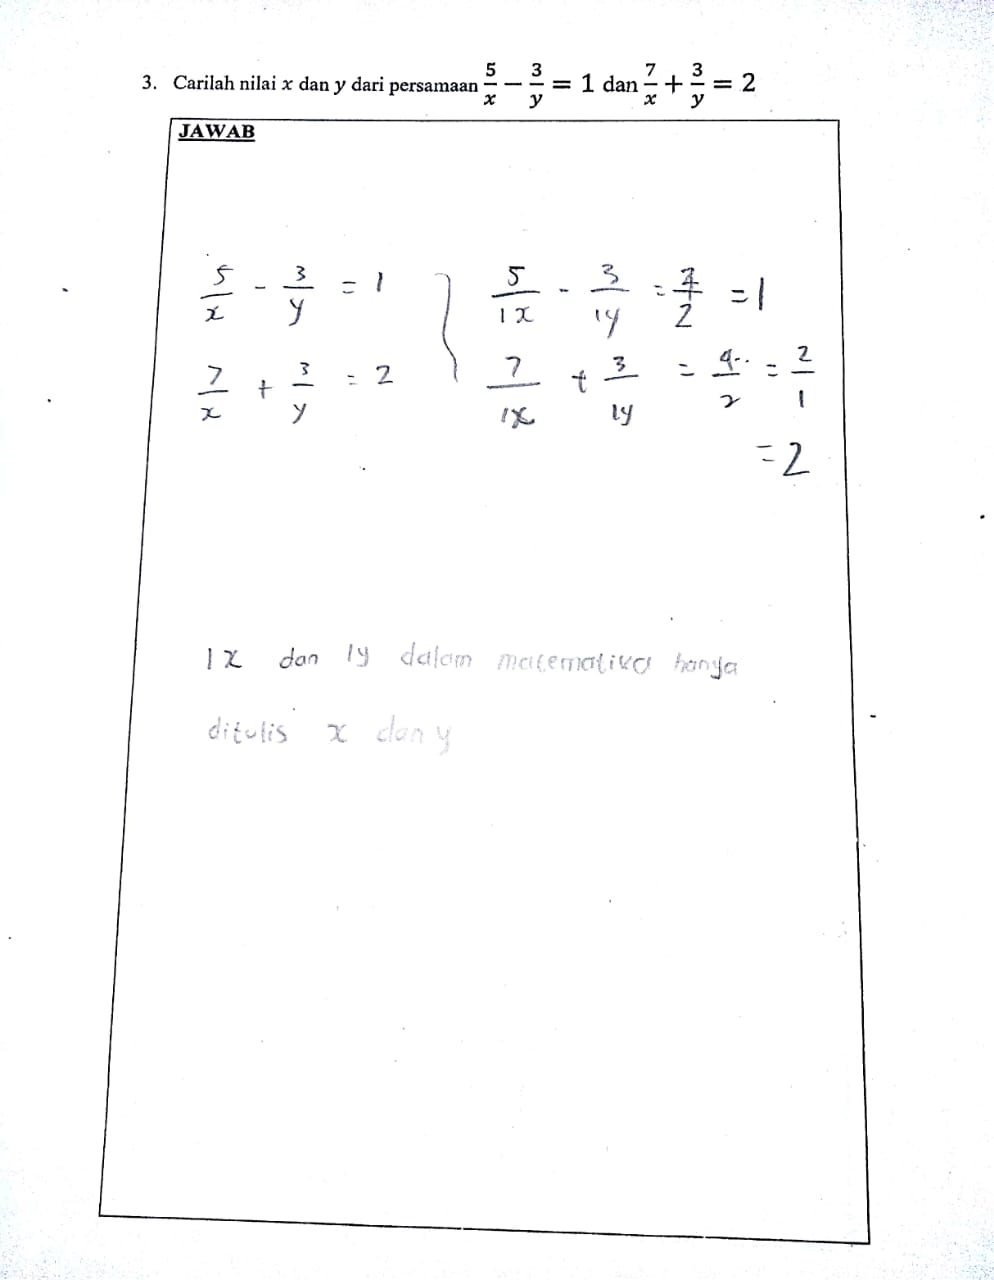 3. Carilah nilai x dan y dari persamaan 5/x − 3/y = 1 dan 7/x + 3/y = 2
JAWAB
5/x - 3/y = 1 } 5/1x - 3/1y = 2/2 = 1
7/x + 3/y = 2 7/1x + 3/1y = 4/2 = 2/1
= 2
1x dan 1y dalam matematika hanya
ditulis x dan y